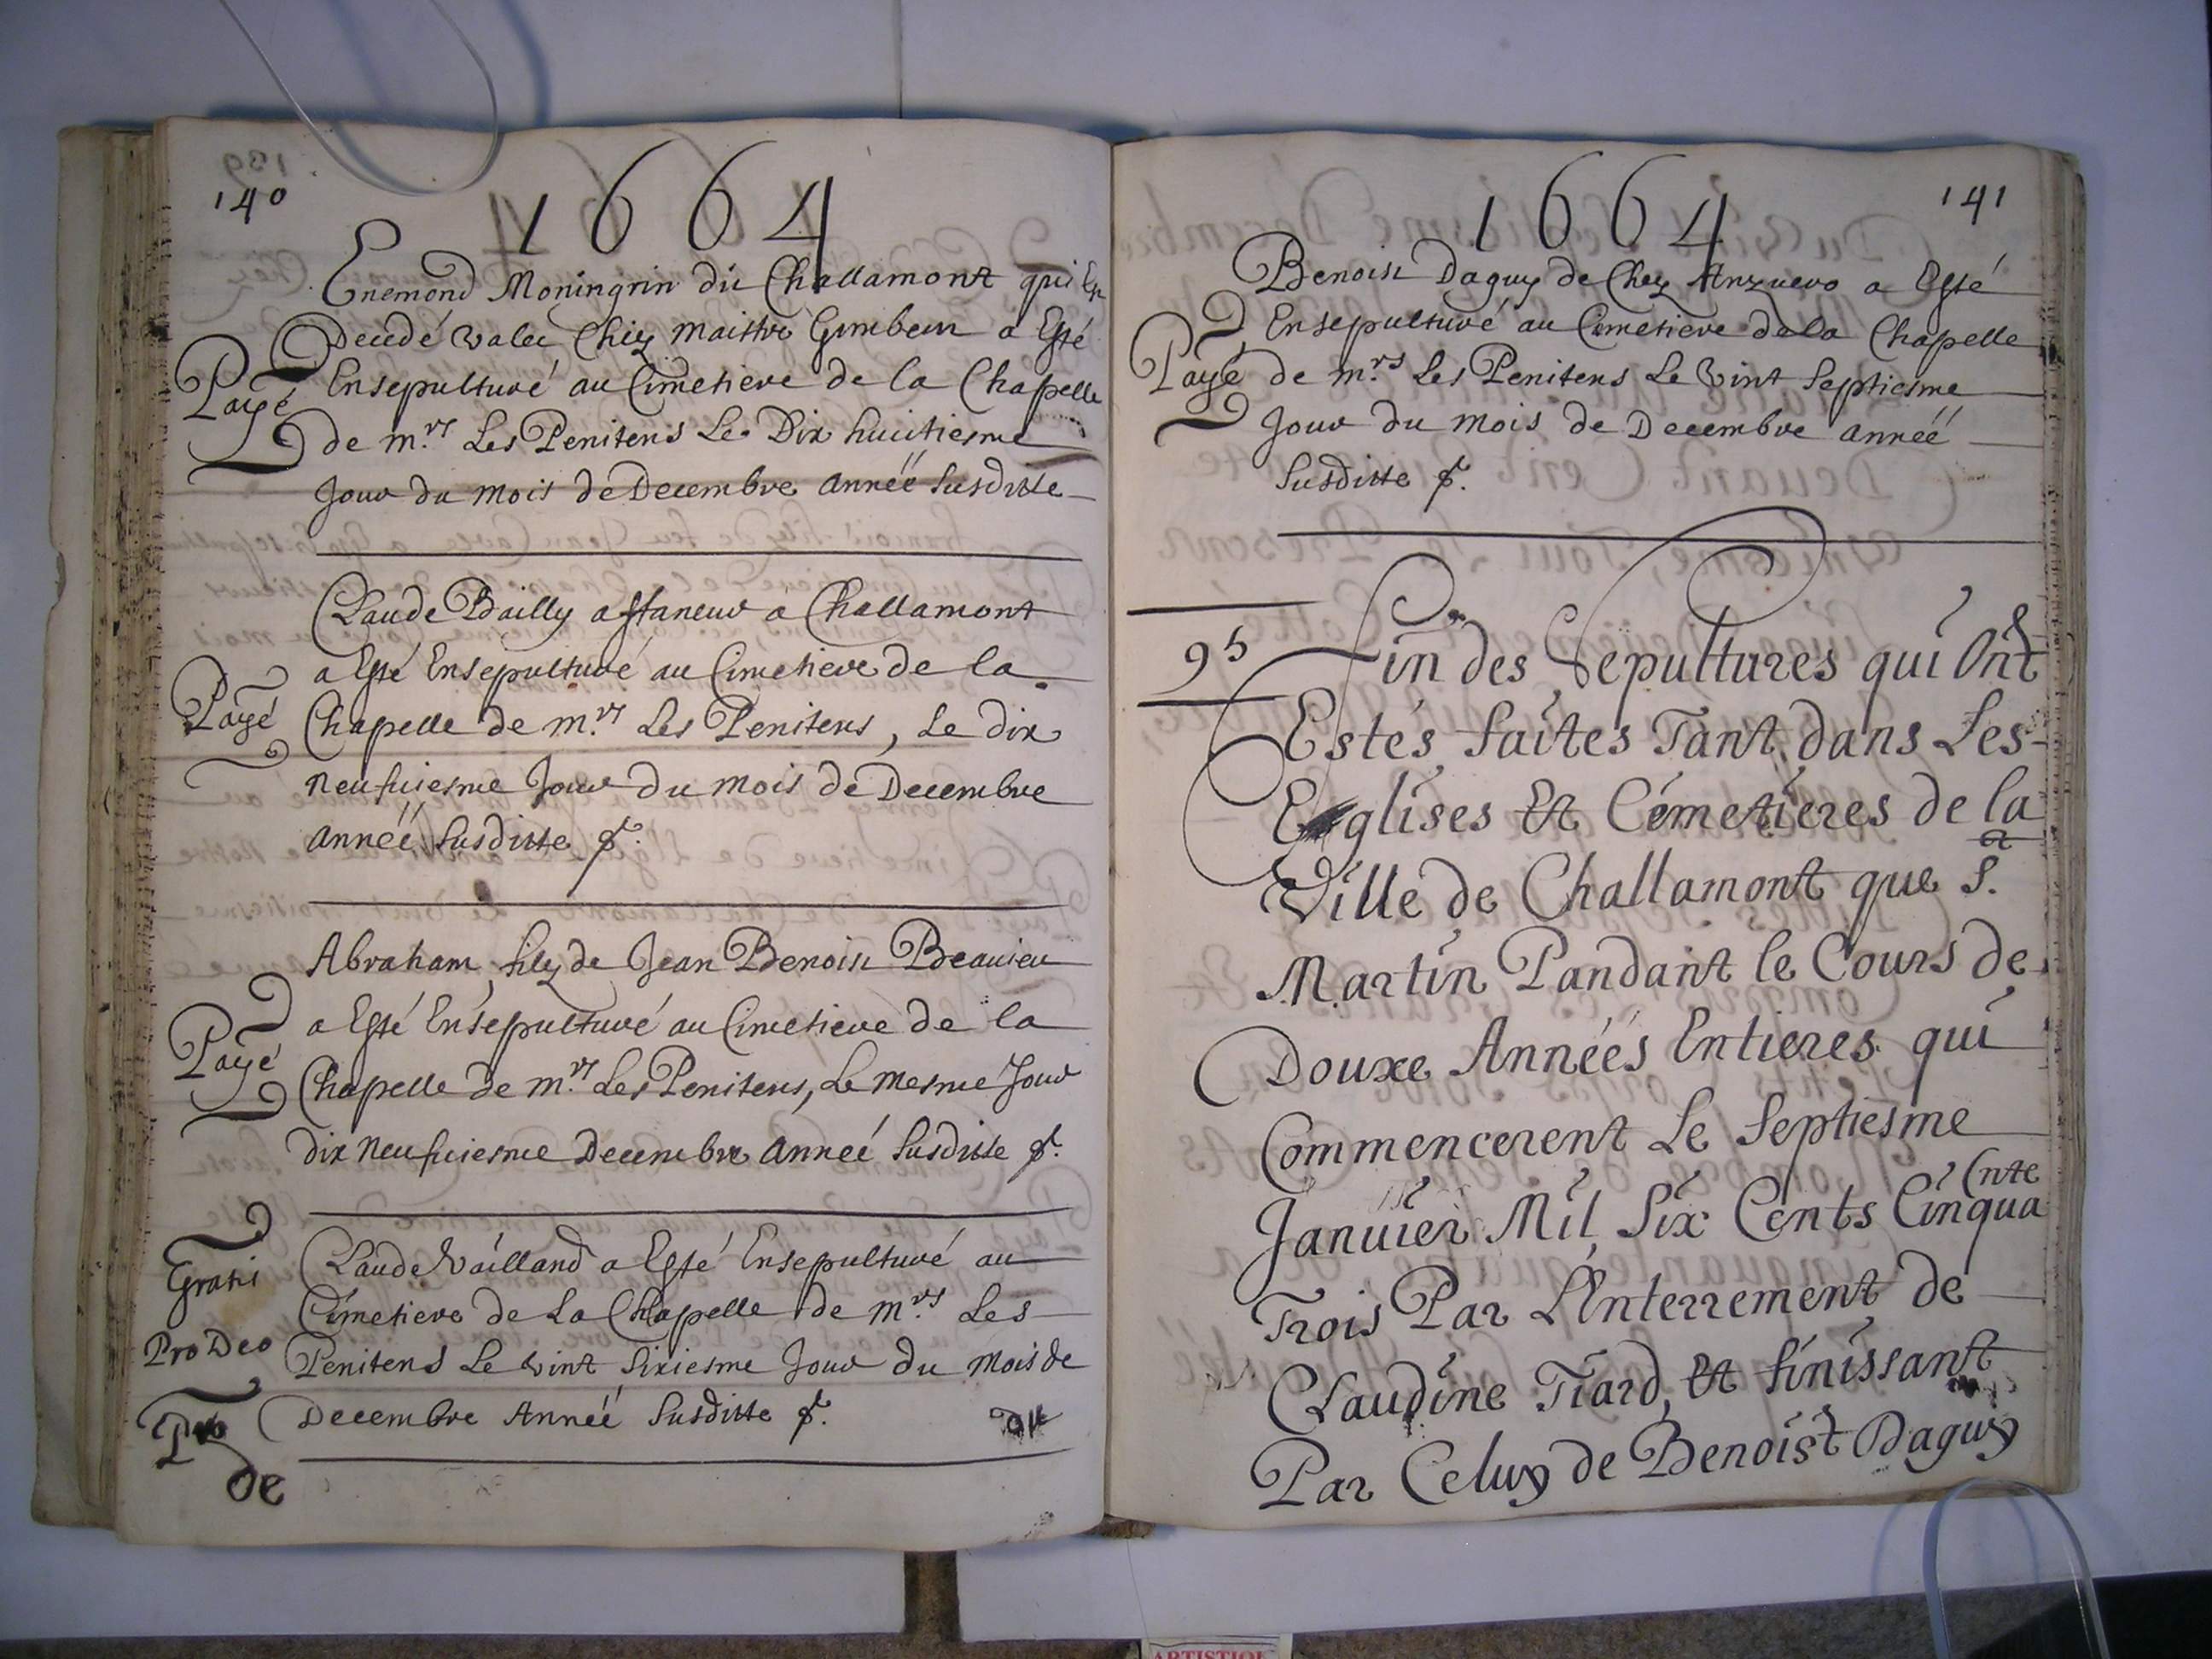 140
1664
Enemond Moningrin du Challamont qui Est
Decedé valet Chez maistre Gimbert a Esté
Payé
Ensepulturé au Cimetiere de la Chapelle
de m.rs Les Penitens Le Dix huictiesme
Jour du mois de Decembre Année Susditte
Claude Bailly affaneur a Challamont
a Esté Ensepulturé au Cimetiere de la
Payé
Chapelle de m.rs Les Penitens, Le dix
neufuiesme Jour du mois de Decembre
Année Susditte
Abraham, filz de Jean Benoist
a Esté Ensepulturé au Cimetiere de la
Payé
Chapelle de m.rs Les Penitens, Le mesme Jour
dix neufuiesme Decembre Anneé Susditte
Grati
Claude Vailland a Esté Ensepulturé au
Cimetiere de La Chapelle de m.rs Les
Pro Deo
Penitens Le vint Sixiesme Jour du mois de
Decembre Année Susditte
de
141
1664
Benoist Daguy de Chez a Esté
Ensepulturé au Cimetiere de la Chapelle
Payé
de m.rs Les Penitens Le vint Septiesme
Jour du mois de Decembre année
Susditte
95
Fin des Sepultures qui Ont
Estés faites Tant dans Les
Eglises Et Cémetieres de la
Ville de Challamont que S.t
Martin Pandant le Cours de
Douxe Années Entieres qui
Commencerent Le Septiesme
Januier Mil Six Cents Cinquante
Trois Par L'Enterrement de
Claudine Tiard, Et finissant
Par Celuy de Benoist Daguy